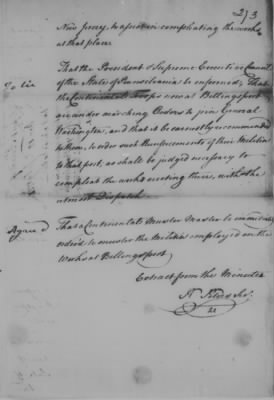 213
New Jersey, to assist in compleating the works
at that place
That the President & Supreme Executive Council
of the State of Pennsylvania be informed, that
the Continental Troops now at Billingsport
are under marching Orders to join General
Washington, and that it be earnestly recommended
to them, to order such Reinforcements of their Militia
to that post, as shall be judged necessary to
compleat the works erecting there, with the
utmost Dispatch
Agreed
That a Continental Muster Master be immediately
order'd to muster the Militia employed on the
Works at Billingsport
Extract from the Minutes